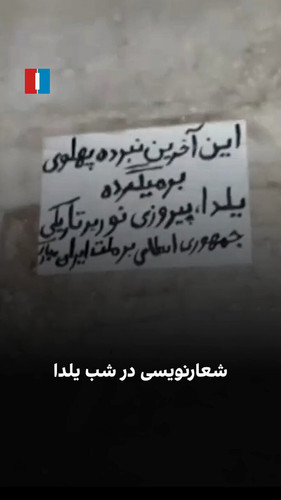 این آخرین نبرده پهلوی
برمیگرده
یلدا، پیروزی نور بر تاریکی
جمهوری اسلامی بر ملت ایران
شعارنویسی در شب یلدا